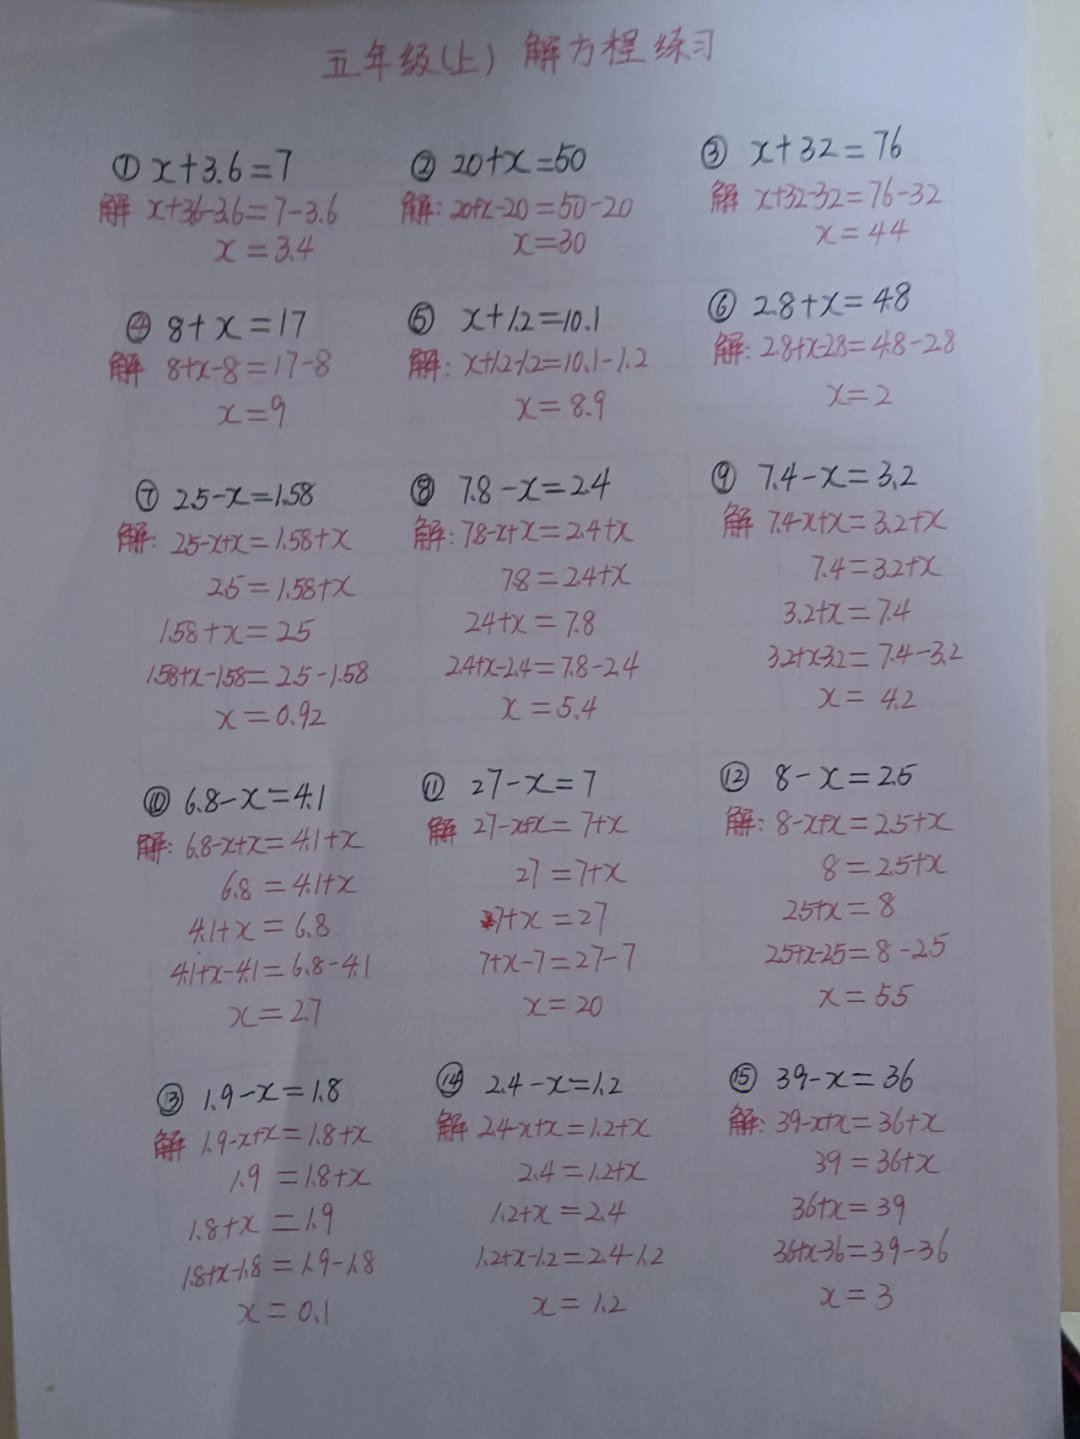 五年级(上) 解方程练习
① x+3.6=7
解 x+3.6-3.6=7-3.6
x=3.4
② 20+x=50
解: 20+x-20=50-20
x=30
③ x+32=76
解 x+32-32=76-32
x=44
④ 8+x=17
解 8+x-8=17-8
x=9
⑤ x+1.2=10.1
解: x+1.2-1.2=10.1-1.2
x=8.9
⑥ 2.8+x=4.8
解: 2.8+x-2.8=4.8-2.8
x=2
⑦ 2.5-x=1.58
解: 2.5-x+x=1.58+x
2.5=1.58+x
1.58+x=2.5
1.58+x-1.58=2.5-1.58
x=0.92
⑧ 7.8-x=2.4
解: 7.8-x+x=2.4+x
7.8=2.4+x
2.4+x=7.8
2.4+x-2.4=7.8-2.4
x=5.4
⑨ 7.4-x=3.2
解 7.4-x+x=3.2+x
7.4=3.2+x
3.2+x=7.4
3.2+x-3.2=7.4-3.2
x=4.2
⑩ 6.8-x=4.1
解: 6.8-x+x=4.1+x
6.8=4.1+x
4.1+x=6.8
4.1+x-4.1=6.8-4.1
x=2.7
⑪ 27-x=7
解 27-x+x=7+x
27=7+x
7+x=27
7+x-7=27-7
x=20
⑫ 8-x=2.5
解: 8-x+x=2.5+x
8=2.5+x
2.5+x=8
2.5+x-2.5=8-2.5
x=5.5
⑬ 1.9-x=1.8
解 1.9-x+x=1.8+x
1.9=1.8+x
1.8+x=1.9
1.8+x-1.8=1.9-1.8
x=0.1
⑭ 2.4-x=1.2
解 2.4-x+x=1.2+x
2.4=1.2+x
1.2+x=2.4
1.2+x-1.2=2.4-1.2
x=1.2
⑮ 39-x=36
解: 39-x+x=36+x
39=36+x
36+x=39
36+x-36=39-36
x=3